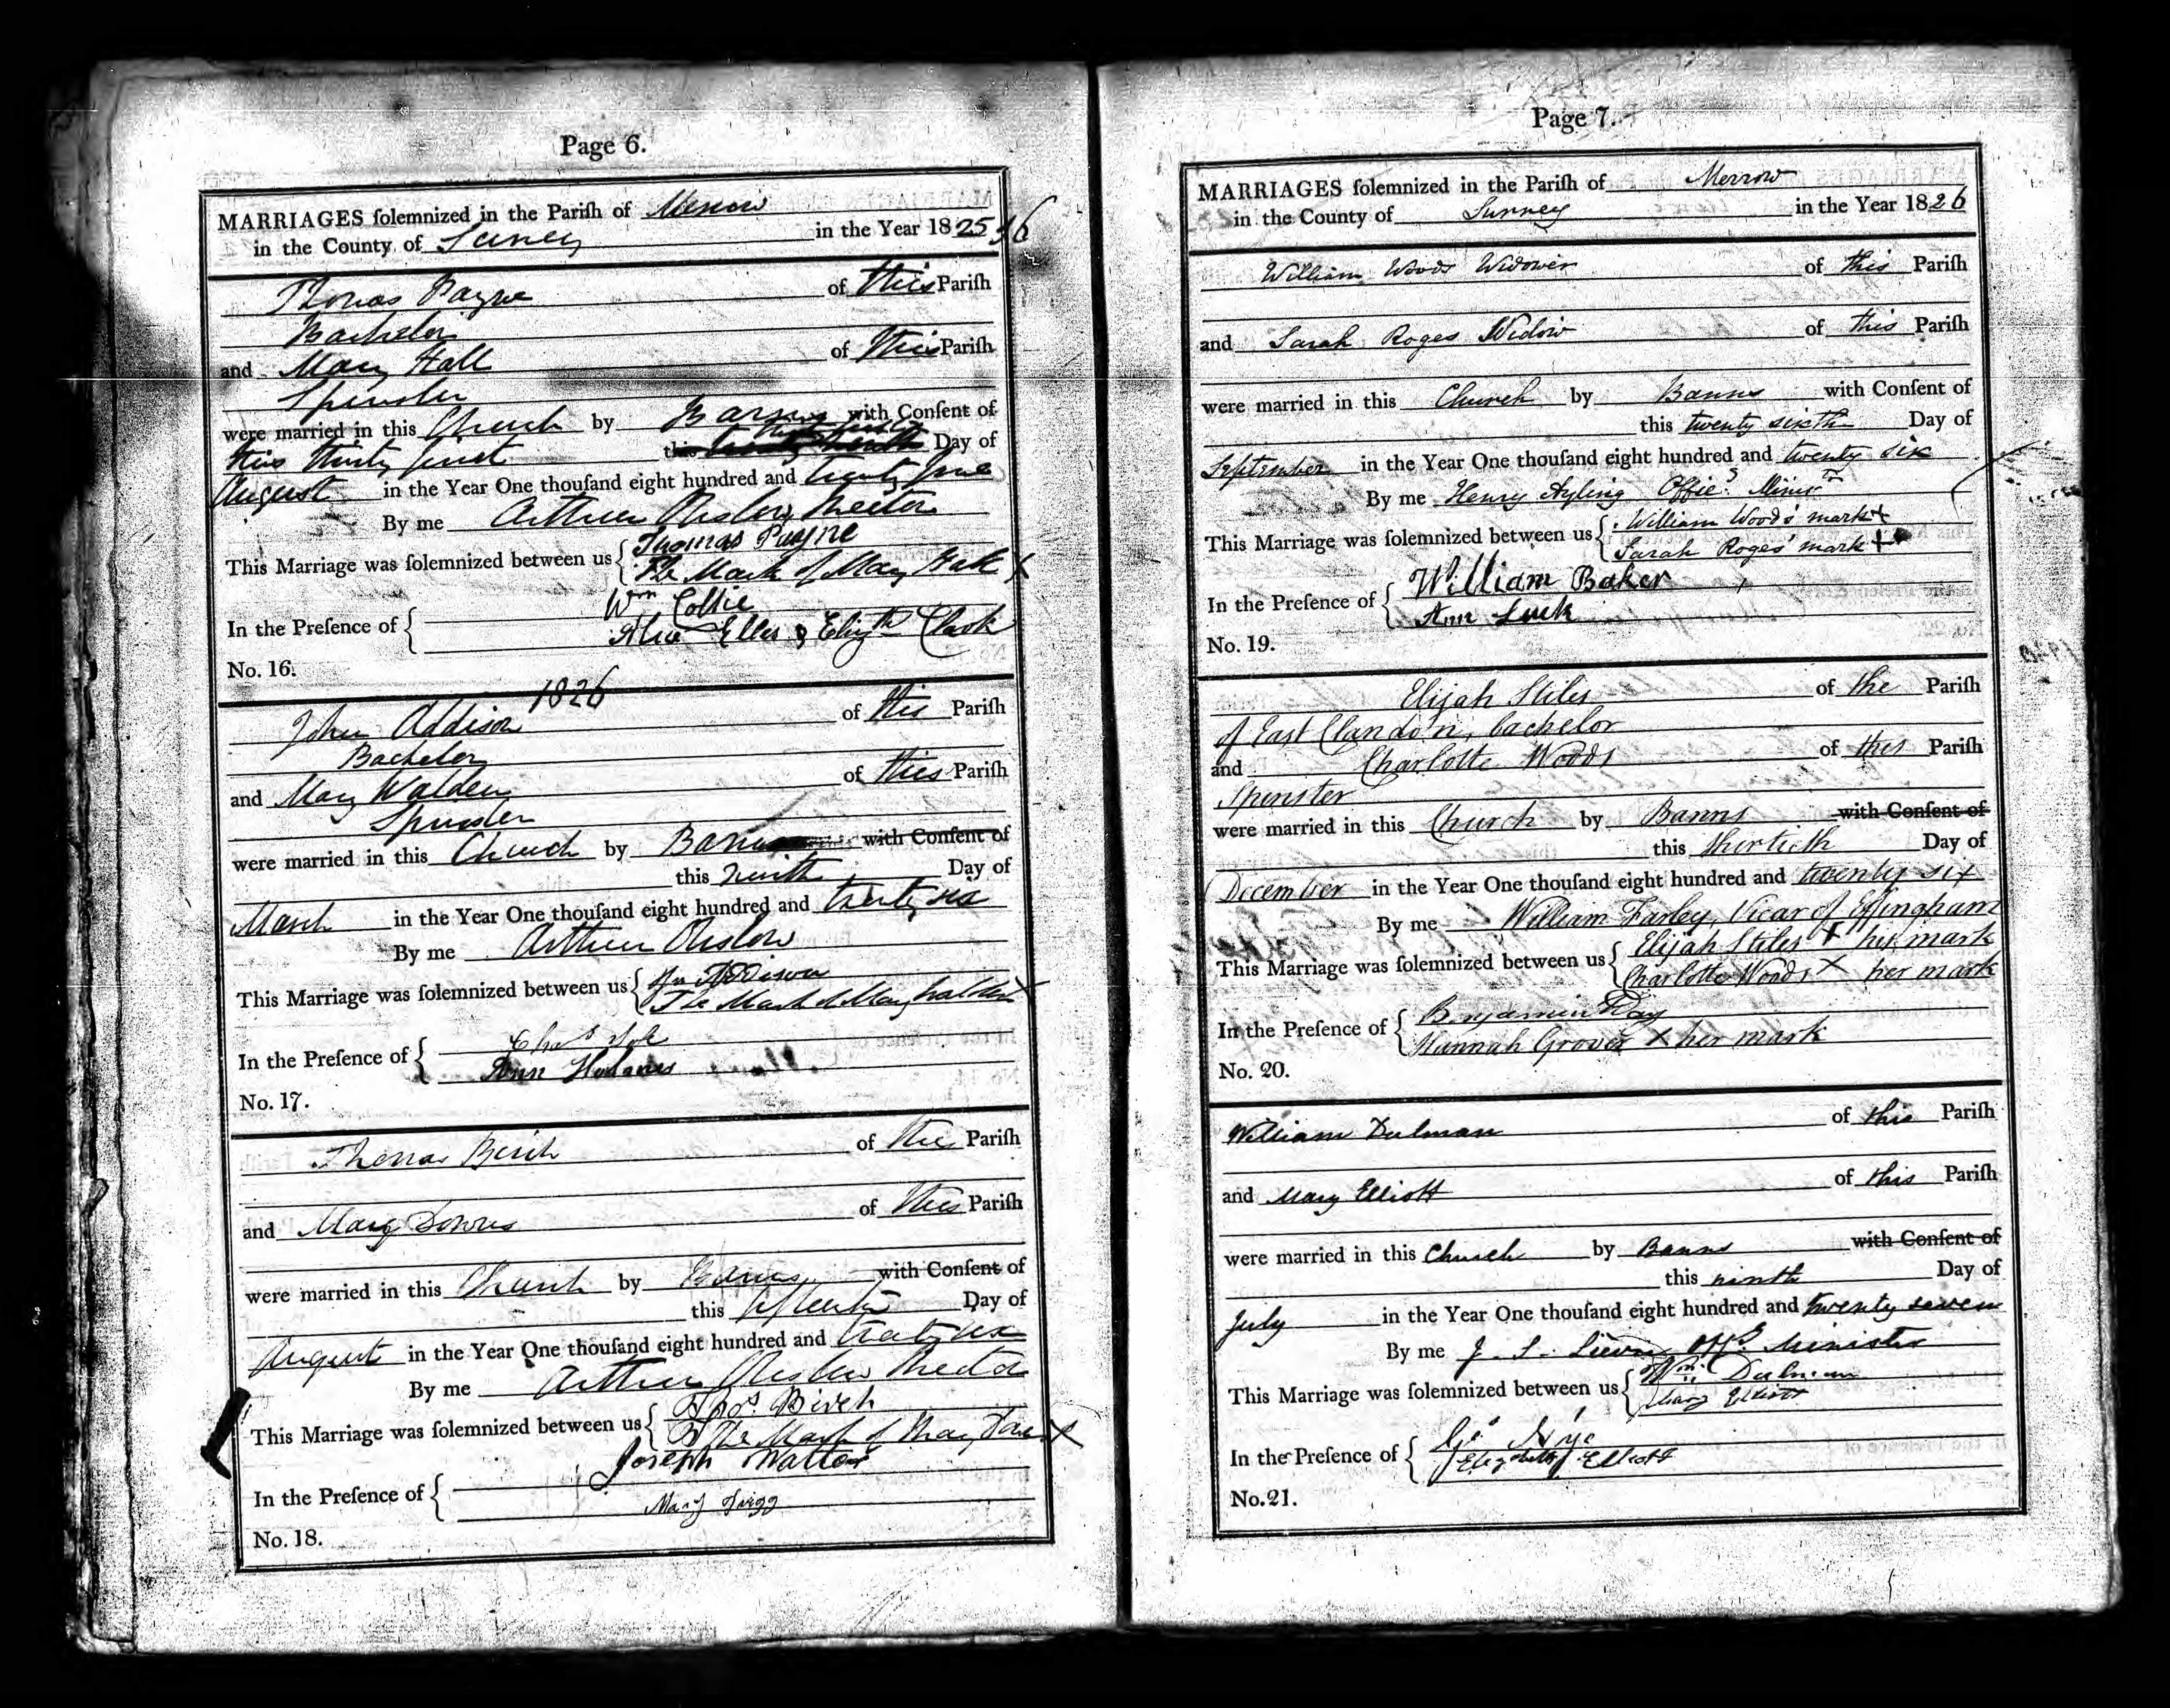 Page 6.
MARRIAGES ſolemnized in the Pariſh of Merrow
in the County of Surrey in the Year 1825
Thomas Payne of this Pariſh
Bachelor
and Mary Hall of this Pariſh
Spinster
were married in this Church by Banns with Conſent of
this thirty first this Day of
August in the Year One thouſand eight hundred and twenty five
By me Arthur Onslow Rector
This Marriage was ſolemnized between us { Thomas Payne
The Mark of Mary Hall X
In the Preſence of { Wm Collie
Alice Elles & Elizth Clark
No. 16.
1826
John Addison of this Pariſh
Bachelor
and Mary Walden of this Pariſh
Spinster
were married in this Church by Banns with Conſent of
this ninth Day of
March in the Year One thouſand eight hundred and twenty six
By me Arthur Onslow
This Marriage was ſolemnized between us { Jn Addison
The Mark of Mary Walden X
In the Preſence of {
Ann
No. 17.
Thomas Birch of this Pariſh
and Mary of this Pariſh
were married in this Church by Banns with Conſent of
this fifteenth Day of
August in the Year One thouſand eight hundred and twenty six
By me Arthur Onslow Rector
This Marriage was ſolemnized between us { Thos Birch
The Mark of Mary X
In the Preſence of { Joseph
Mary
No. 18.
Page 7.
MARRIAGES ſolemnized in the Pariſh of Merrow
in the County of Surrey in the Year 1826
William Woods Widower of this Pariſh
and Sarah Roges Widow of this Pariſh
were married in this Church by Banns with Conſent of
this twenty sixth Day of
September in the Year One thouſand eight hundred and twenty six
By me Henry Ayling Offics Minr
This Marriage was ſolemnized between us { William Woods' mark +
Sarah Roges' mark +
In the Preſence of { William Baker
Ann Luck
No. 19.
Elijah Stiles of the Pariſh
of East Clandon, bachelor
and Charlotte Woods of this Pariſh
Spinster
were married in this Church by Banns with Conſent of
this thirtieth Day of
December in the Year One thouſand eight hundred and twenty six
By me William Farley, Vicar of Effingham
This Marriage was ſolemnized between us { Elijah Stiles + his mark
Charlotte Woods X her mark
In the Preſence of { Benjamin Day
Hannah Grover X her mark
No. 20.
William Dulman of this Pariſh
and Mary Elliott of this Pariſh
were married in this Church by Banns with Conſent of
this ninth Day of
July in the Year One thouſand eight hundred and twenty seven
By me J. S. Offg Minister
This Marriage was ſolemnized between us { Wm Dulman
Mary Elliott
In the Preſence of { Geo Nye
Elizabeth Elliott
No. 21.